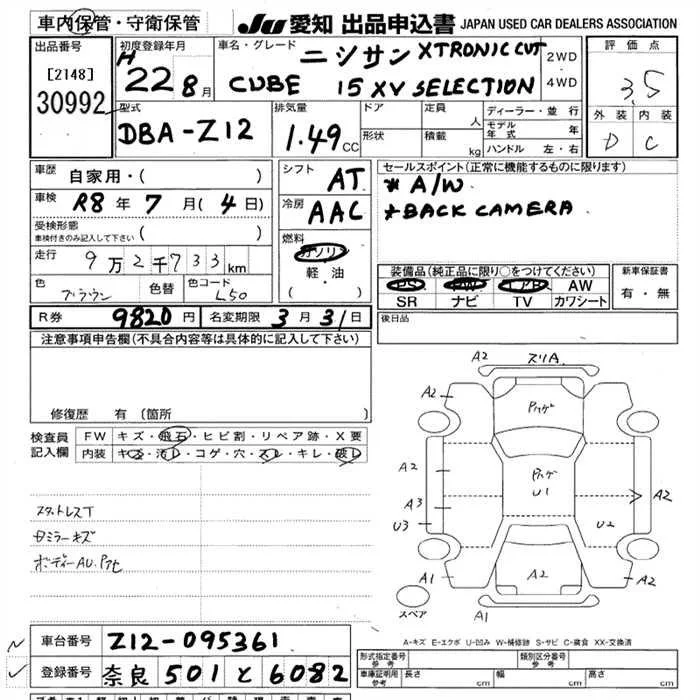 車内保管・守衛保管
JU 愛知 出品申込書 JAPAN USED CAR DEALERS ASSOCIATION
出品番号
[2148]
30992
初度登録年月
H 22 8月
車名・グレード
ニシサン XTRONIC CVT
CUBE 15 XV SELECTION
2WD
4WD
評価点
3.5
外装 内装
D C
型式
DBA-Z12
排気量
1.49 CC
ドア
形状
定員 人
積載 kg
ディーラー・並行
モデル年式 年
ハンドル 左・右
車歴 自家用・( )
車検 R8年 7月(4日)
受検形態
車検付きのみ記入して下さい ( )
走行 9万2千733km
色 ブラウン 色替 色コード L50
シフト AT
冷房 AAC
燃料
ガソリン
軽・油
( ・ )
セールスポイント(正常に機能するものに限ります)
* A/W
* BACK CAMERA
装備品(純正品に限り○をつけてください)
PS PW エアB AW
SR ナビ TV カワシート
新車保証書
有・無
R券 9820円 名変期限 3月31日
後日品
注意事項申告欄(不具合内容等は具体的に記入して下さい)
修復歴 有(箇所
検査員記入欄
FW キズ・飛石・ヒビ割・リペア跡・X要
内装 キズ・汚レ・コゲ・穴・スレ・キレ・破レ
スタットレスT
ボディーAU.
A2 スリA
A2
A2
A3
U3
U1
A2
U2
A2
A1
A1
スペア
A-キズ E-エクボ U-凹み W-補修跡 S-サビ C-腐食 XX-交換済
車台番号 Z12-095361
登録番号 奈良 501 と 6082
形式指定番号 参考
類別区分番号 参考
車庫証明用 参考 長さ cm 幅 cm 高さ cm